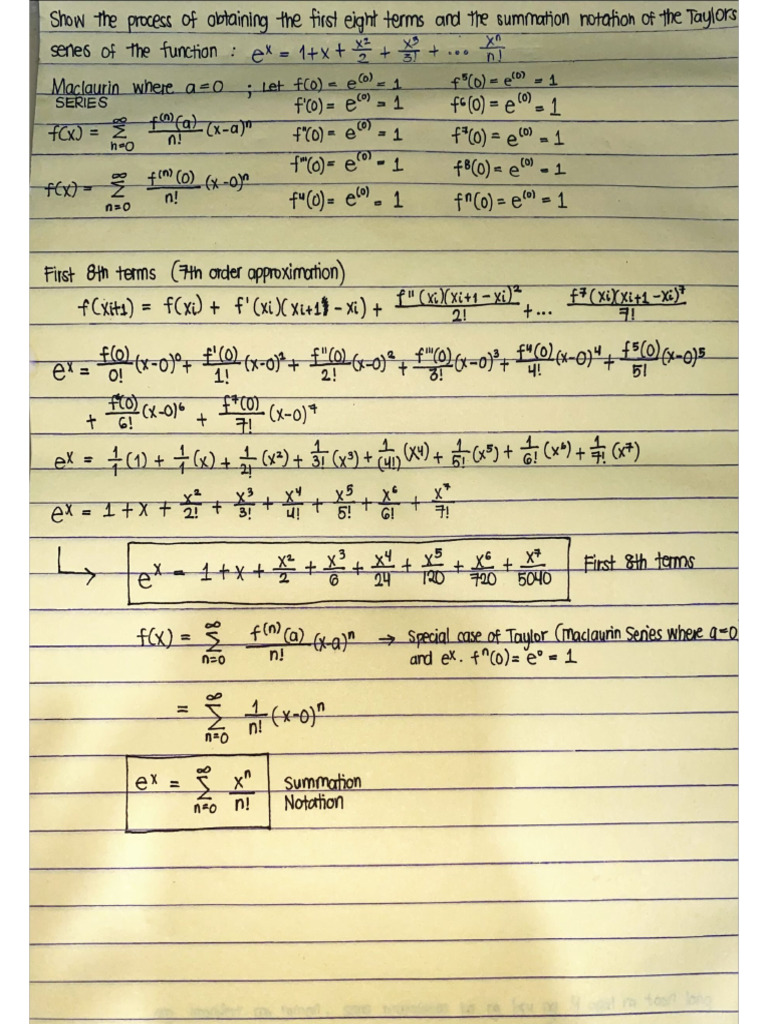 Show the process of obtaining the first eight terms and the summation notation of the Taylors
series of the function : e^x = 1+x + x²/2 + x³/3! + ... x^n/n!
Maclaurin where a=0 ; Let f(0) = e^(0) = 1    f⁵(0) = e^(0) = 1
SERIES    f'(0) = e^(0) = 1    f⁶(0) = e^(0) = 1
f(x) = ∞ Σ n=0 f^(n)(a)/n! (x-a)^n    f''(0) = e^(0) = 1    f⁷(0) = e^(0) = 1
f(x) = ∞ Σ n=0 f^(n)(0)/n! (x-0)^n    f'''(0) = e^(0) = 1    f⁸(0) = e^(0) = 1
f⁴(0) = e^(0) = 1    f^n(0) = e^(0) = 1
First 8th terms (7th order approximation)
f(xi+1) = f(xi) + f'(xi)(xi+1 - xi) + f''(xi)(xi+1 - xi)²/2! + ... f⁷(xi)(xi+1 - xi)⁷/7!
e^x = f(0)/0! (x-0)⁰ + f'(0)/1! (x-0)¹ + f''(0)/2! (x-0)² + f'''(0)/3! (x-0)³ + f⁴(0)/4! (x-0)⁴ + f⁵(0)/5! (x-0)⁵
+ f⁶(0)/6! (x-0)⁶ + f⁷(0)/7! (x-0)⁷
e^x = 1/1 (1) + 1/1 (x) + 1/2! (x²) + 1/3! (x³) + 1/(4!) (x⁴) + 1/5! (x⁵) + 1/6! (x⁶) + 1/7! (x⁷)
e^x = 1 + x + x²/2! + x³/3! + x⁴/4! + x⁵/5! + x⁶/6! + x⁷/7!
↳ e^x = 1 + x + x²/2 + x³/6 + x⁴/24 + x⁵/120 + x⁶/720 + x⁷/5040    First 8th terms
f(x) = ∞ Σ n=0 f^(n)(a)/n! (x-a)^n → Special case of Taylor (Maclaurin Series where a=0
and e^x. f^n(0) = e⁰ = 1
= ∞ Σ n=0 1/n! (x-0)^n
e^x = ∞ Σ n=0 x^n/n!    Summation
Notation